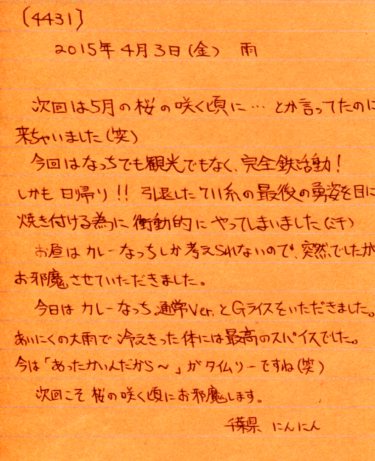 [4431]
2015年4月3日(金) 雨
次回は5月の桜の咲く頃に…とか言ってたのに
来ちゃいました(笑)
今回はなっちでも観光でもなく、完全鉄活動!
しかも日帰り!!引退した711系の最後の勇姿を目に
焼き付ける為に衝動的にやってしまいました(ミチ)
お昼はカレーなっちしか考えられないので、突然でしたが
お邪魔させていただきました。
今日はカレーなっち通常Ver.とGライスをいただきました。
あいにくの大雨で冷えきった体には最高のスパイスでした。
今は「あったかいんだから～」がタイムリーですね(笑)
次回こそ桜の咲く頃にお邪魔します。
千葉県 にんにん